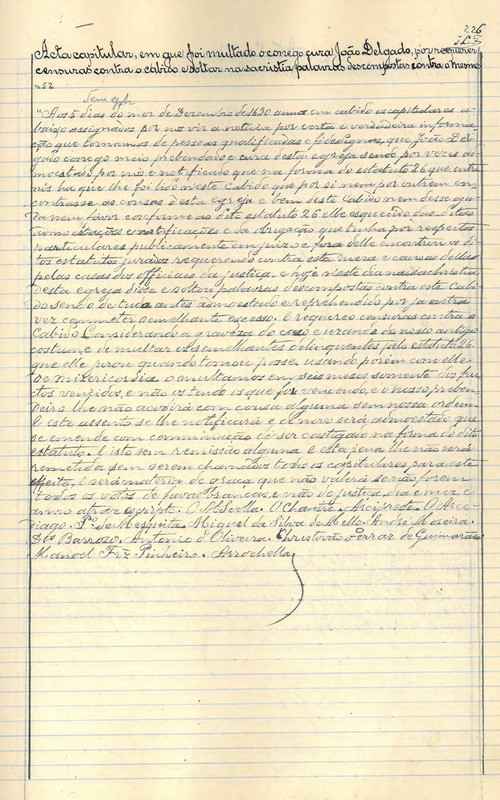 226
Acta capitular, em que foi multado o conego cura João Delgado, por requerer
censuras contra o cabido e soltar na sacristia palavras descompostas contra o mesmo
52
"Aos 5 dias do mez de Dezembro de 1630 annos em cabido os capitulares a-
baixo assignados por nos vir a noticia por certa e verdadeira informa-
ção que tomamos de pessoas qualificadas e fidedignas, que João Del-
gado conego meio prebendado e cura desta egreja sendo por vezes ad-
moestado por nós e notificado que na forma do estatuto 26 que entre
nós ha que lhe foi lido neste Cabido que por si nem por outrem em-
contrasse as cousas desta Egreja e bem deste Cabido nem desse aju-
da nem favor conforme ao dito estatuto 26 elle esquecido das ditas
amoestações e notificações e da obrigação que tinha por respeitos
particulares publicamente em juizo e fora delle encontrou os di-
tos estatutos jurados requerendo contra esta meza e causas dellas
pelas casas dos officiaes da justiça. e hoje neste dia na sachristia
desta egreja disse e soltou palavras descompostas contra este Cabi-
do sendo de tudo antes admoestado e reprehendido por ja outra
vez commeter semelhante excesso. E requereo censuras contra o
Cabido. Considerando a graveza do caso e uzando do nosso antigo
costume de multar os semelhantes delinquentes pelo estatuto 26
que elle jurou quando tomou posse, usando porém com elle
de mizericordia o multamos em seis mezes somente dos fru-
tos vencidos, e não os tendo os que for vencendo, e o nosso preben-
deiro lhe não acodirá com cousa alguma sem nossa ordem.
E este assento se lhe notificará e de novo será admoestado que
se emende com comminação de ser castigado na firma do dito
estatuto. E isto sem remissão alguma e esta pena lhe não será
remetida sem serem chamados todos os capitulares para este
effeito, e será materia de graça que não valerá se não forem
todos os votos de favas brancas, e não de justiça. dia e mez e
anno atraz escripto. O Mescolla. O Chantre. Arcipreste. O Arce-
diago. P.º de Mesquita. Miguel da Silva de Mello. André Moreira.
Barrozo. Antonio d'Oliveira. Christovão Ferraz de Guimarães.
Manoel Frz Pinheiro. Arrochella